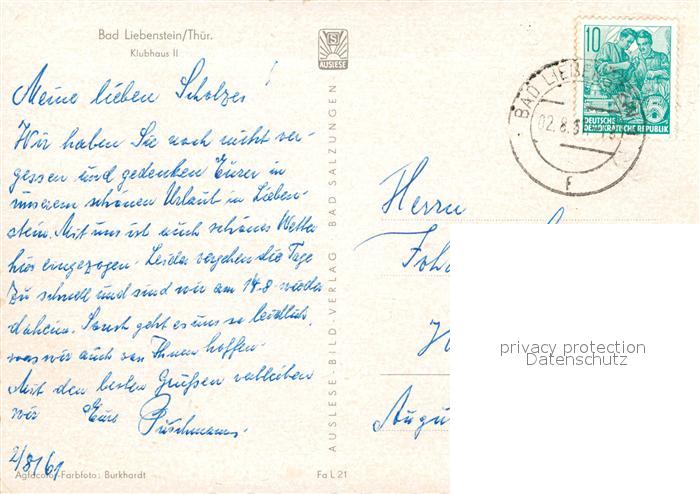 Bad Liebenstein/Thür.
Klubhaus II
AUSLESE
Meine lieben Scholzes!
Wir haben Sie noch nicht ver-
gessen und gedenken Eurer in
unserem schönen Urlaub in Lieben-
stein. Mit uns ist auch schönes Wetter
hier eingezogen. Leider vergehen die Tage
zu schnell und sind wir am 14.8. wieder
daheim. Sonst geht es uns so leidlich,
was wir auch von Ihnen hoffen.
Mit den besten Grüßen verbleiben
wir Eure Puschmanns.
2/8/61
Agfacolor-Farbfoto: Burkhardt
Fa L 21
AUSLESE-BILD-VERLAG · BAD SALZUNGEN
10
DEUTSCHE
DEMOKRATISCHE REPUBLIK
BAD LIEBENSTEIN
02.8.61
F
Herrn
privacy protection
Datenschutz